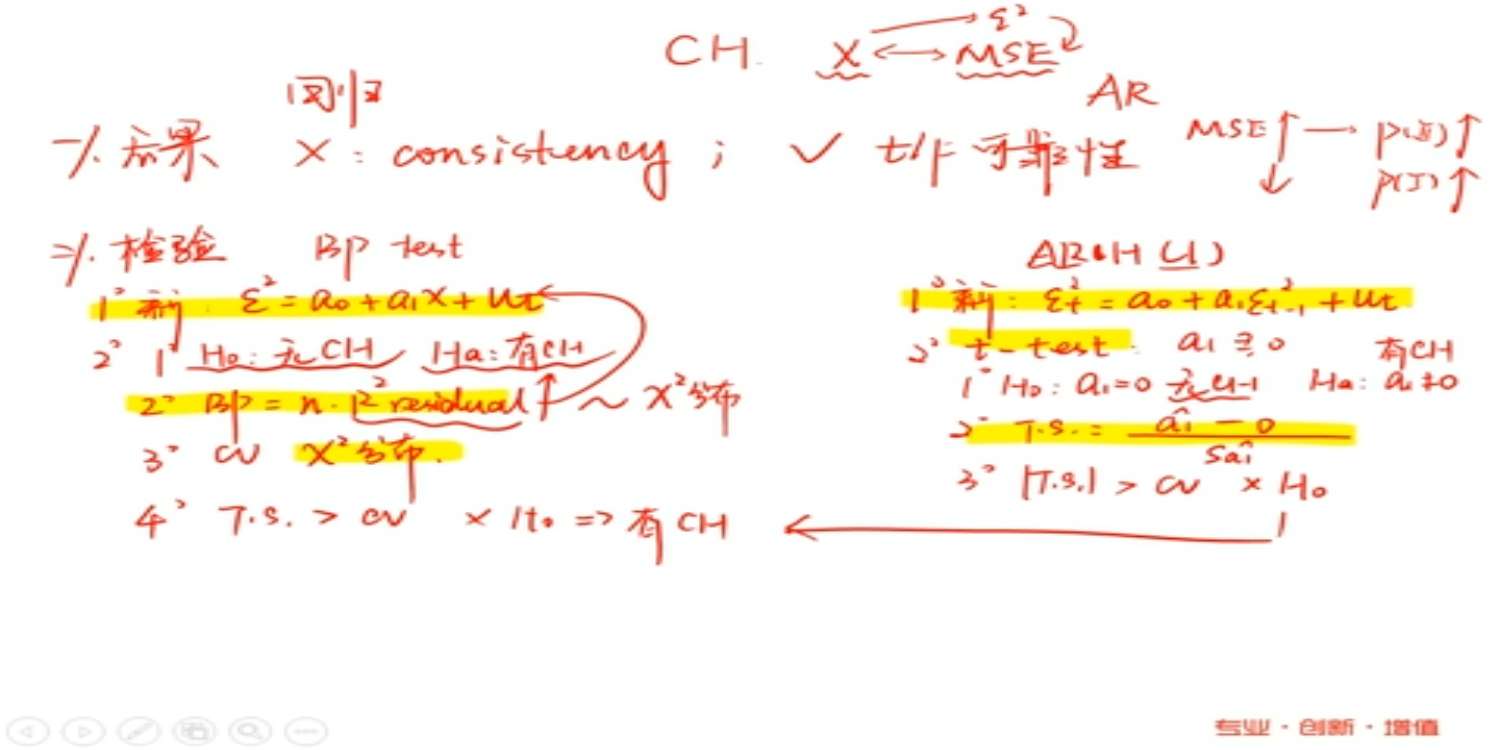 CH. X ⟷ MSE ε²
回归 AR
一、后果 X: consistency; ✓ t/F 可靠性 MSE ↑ — P(II)↑
↓ P(I)↑
二、检验 BP test ARCH (1)
1° 新: ε² = a₀ + a₁X + uₜ
2° 1° H₀: 无CH Ha: 有CH
2° BP = n·R² residual ↑ ~ X²分布
3° cv X²分布.
4° T.S. > cv × H₀ => 有CH
1° 新: εₜ² = a₀ + a₁εₜ₋₁² + uₜ
2° t-test: a₁ ≟ 0 有CH
1° H₀: a₁=0 无CH Ha: a₁≠0
2° T.S. = (â₁ − 0) / Sâ₁
3° |T.S.| > cv × H₀
专业·创新·增值